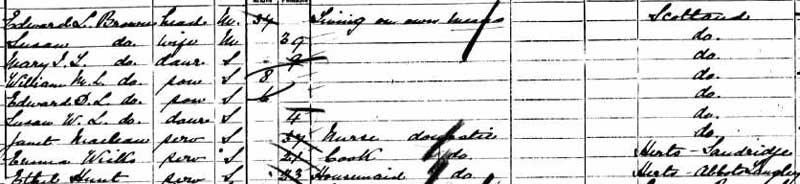 Edward L. Brown head M. 34 Living on own means Scotland
Susan do. wife M 39 do.
Mary I. L. do. daur S 9 do.
William M. L. do. son S 8 do.
Edward D. L. do. son S 6 do.
Susan W. L. do. daur S 4 do.
Janet Maclean serv S 34 Nurse domestic do.
Emma Wills serv S 21 Cook do Herts - Sandridge
Ethel Hunt serv S 23 Housemaid do Herts - Abbots Langley